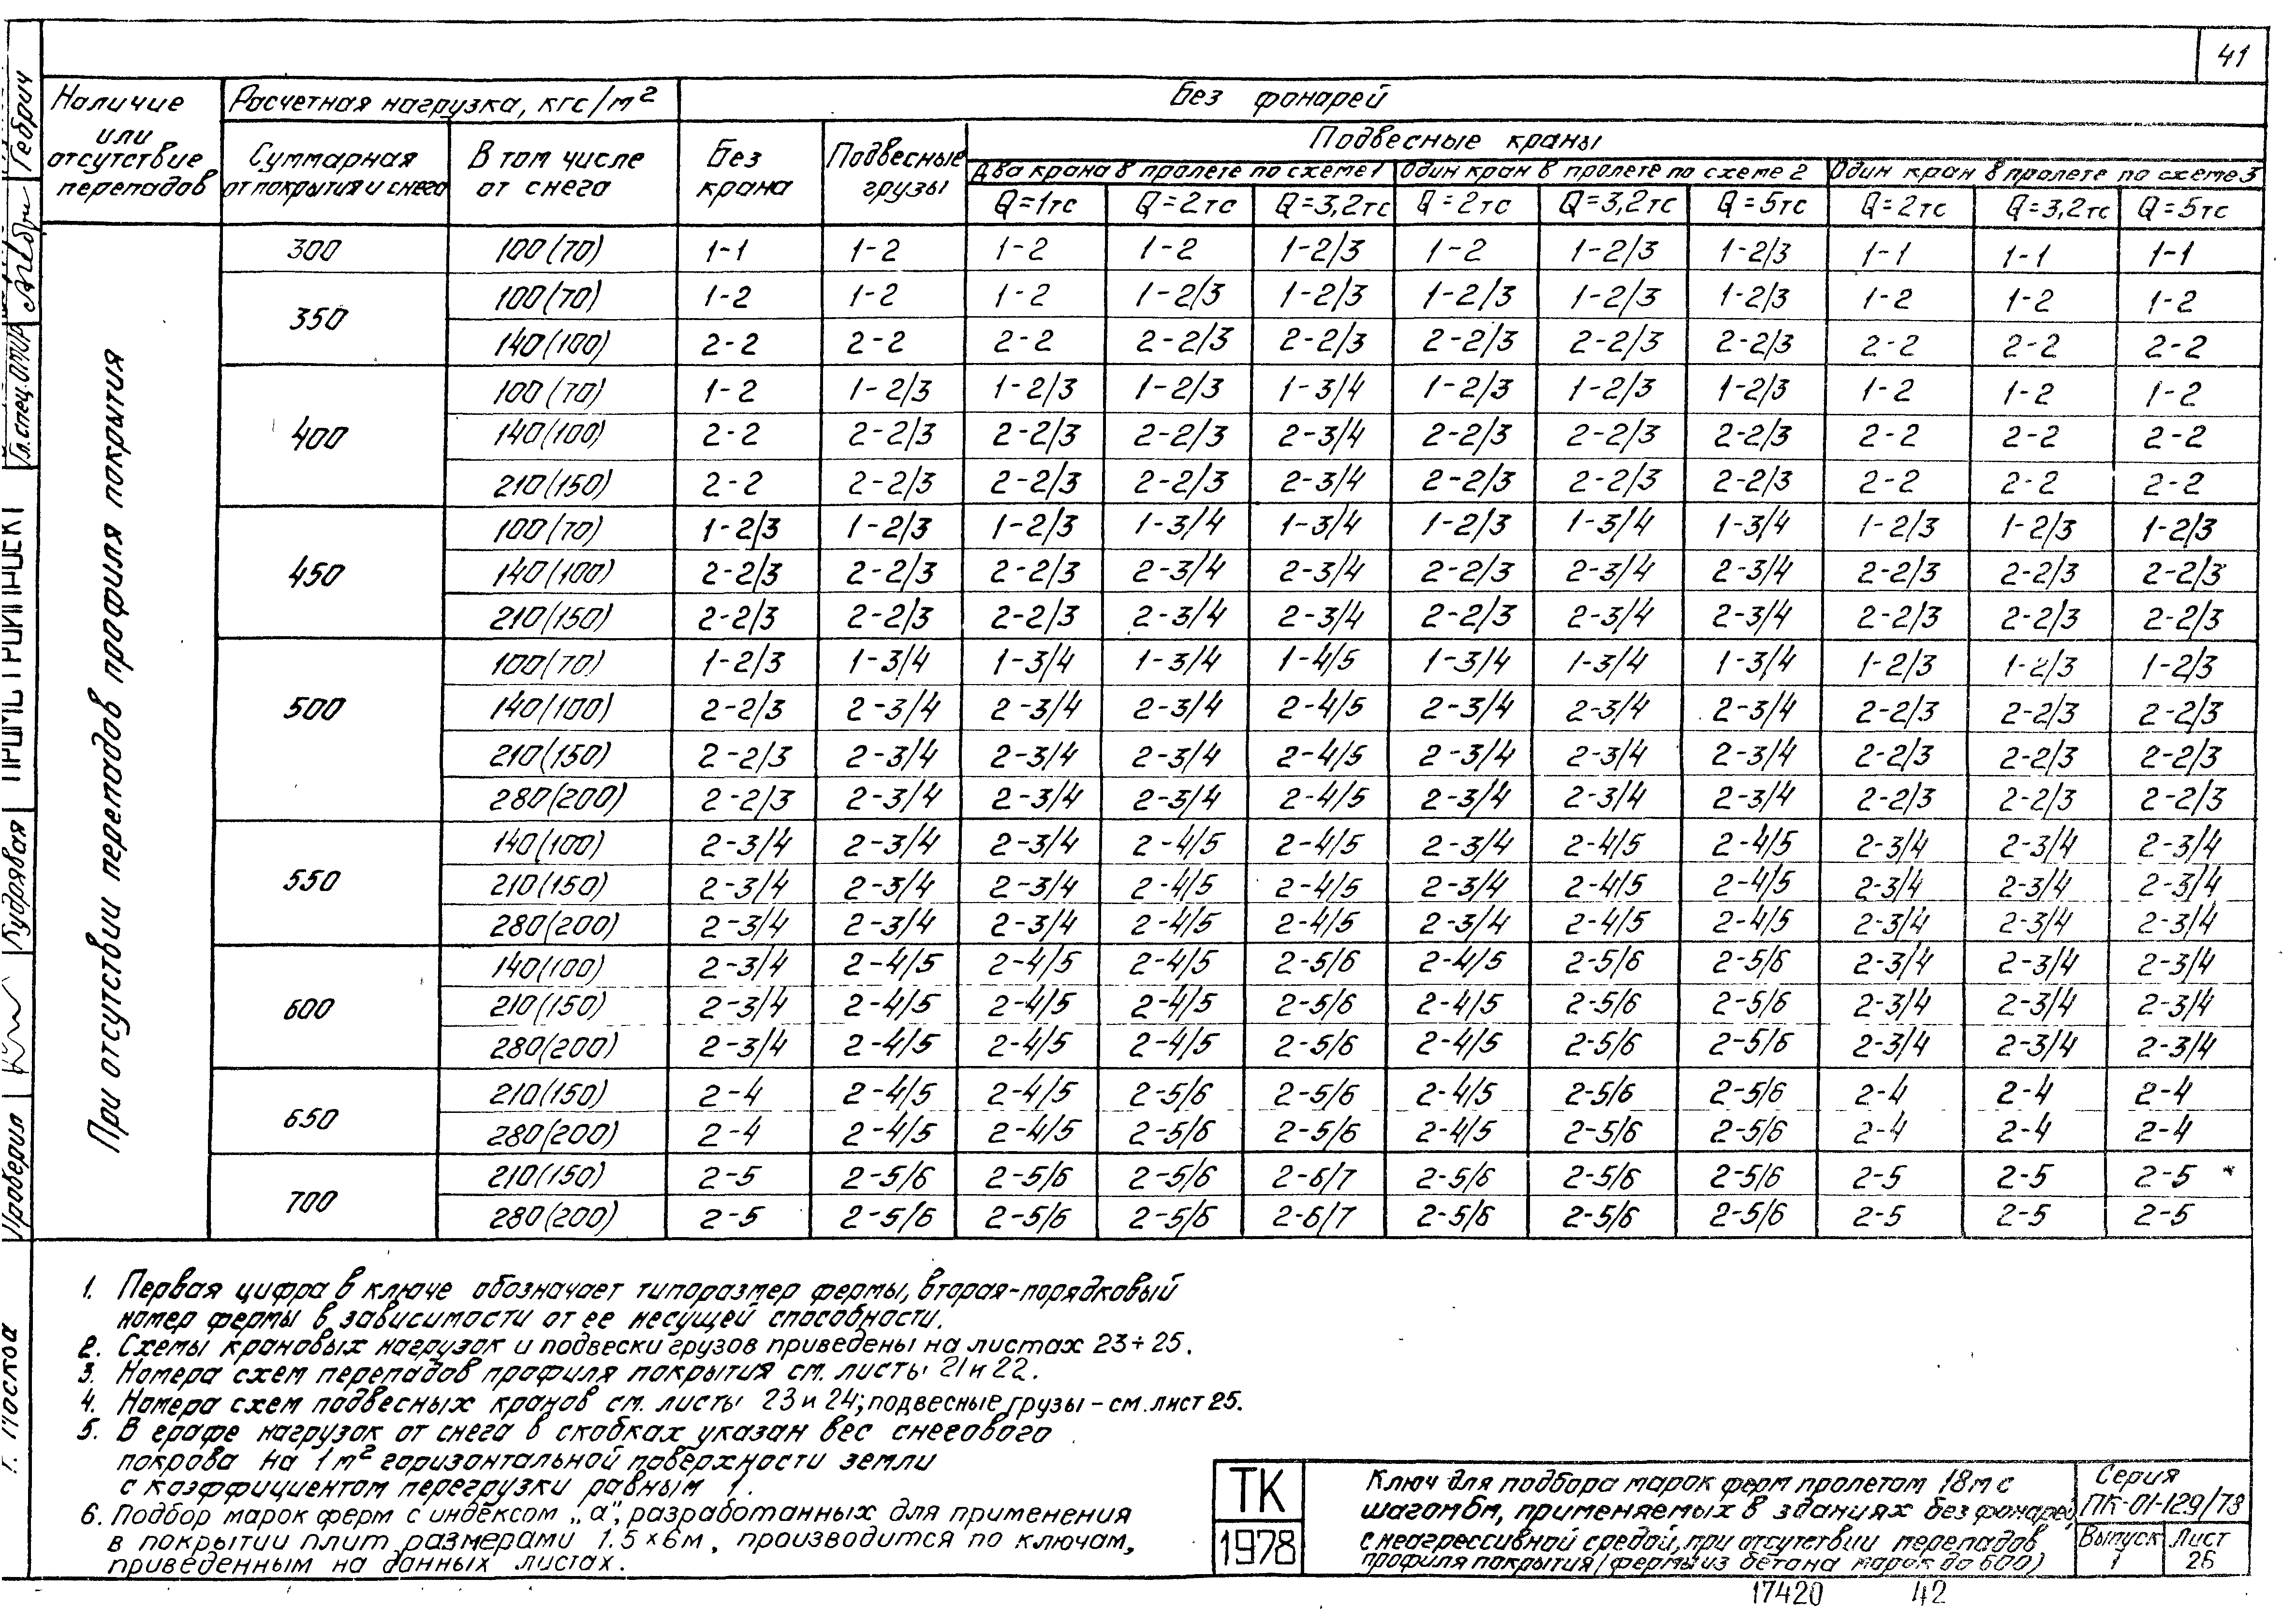 41
Наличие или отсутствие перепадов
Расчетная нагрузка, кгс/м²
Без фонарей
Суммарная от покрытия и снега
В том числе от снега
Без крана
Подвесные грузы
Подвесные краны
Два крана в пролете по схеме 1
Один кран в пролете по схеме 2
Один кран в пролете по схеме 3
Q=1тс Q=2тс Q=3,2тс Q=2тс Q=3,2тс Q=5тс Q=2тс Q=3,2тс Q=5тс
При отсутствии перепадов профиля покрытия
300 100(70) 1-1 1-2 1-2 1-2 1-2/3 1-2 1-2/3 1-2/3 1-1 1-1 1-1
350 100(70) 1-2 1-2 1-2 1-2/3 1-2/3 1-2/3 1-2/3 1-2/3 1-2 1-2 1-2
140(100) 2-2 2-2 2-2 2-2/3 2-2/3 2-2/3 2-2/3 2-2/3 2-2 2-2 2-2
400 100(70) 1-2 1-2/3 1-2/3 1-2/3 1-3/4 1-2/3 1-2/3 1-2/3 1-2 1-2 1-2
140(100) 2-2 2-2/3 2-2/3 2-2/3 2-3/4 2-2/3 2-2/3 2-2/3 2-2 2-2 2-2
210(150) 2-2 2-2/3 2-2/3 2-2/3 2-3/4 2-2/3 2-2/3 2-2/3 2-2 2-2 2-2
450 100(70) 1-2/3 1-2/3 1-2/3 1-3/4 1-3/4 1-2/3 1-3/4 1-3/4 1-2/3 1-2/3 1-2/3
140(100) 2-2/3 2-2/3 2-2/3 2-3/4 2-3/4 2-2/3 2-3/4 2-3/4 2-2/3 2-2/3 2-2/3
210(150) 2-2/3 2-2/3 2-2/3 2-3/4 2-3/4 2-2/3 2-3/4 2-3/4 2-2/3 2-2/3 2-2/3
500 100(70) 1-2/3 1-3/4 1-3/4 1-3/4 1-4/5 1-3/4 1-3/4 1-3/4 1-2/3 1-2/3 1-2/3
140(100) 2-2/3 2-3/4 2-3/4 2-3/4 2-4/5 2-3/4 2-3/4 2-3/4 2-2/3 2-2/3 2-2/3
210(150) 2-2/3 2-3/4 2-3/4 2-3/4 2-4/5 2-3/4 2-3/4 2-3/4 2-2/3 2-2/3 2-2/3
280(200) 2-2/3 2-3/4 2-3/4 2-3/4 2-4/5 2-3/4 2-3/4 2-3/4 2-2/3 2-2/3 2-2/3
550 140(100) 2-3/4 2-3/4 2-3/4 2-4/5 2-4/5 2-3/4 2-4/5 2-4/5 2-3/4 2-3/4 2-3/4
210(150) 2-3/4 2-3/4 2-3/4 2-4/5 2-4/5 2-3/4 2-4/5 2-4/5 2-3/4 2-3/4 2-3/4
280(200) 2-3/4 2-3/4 2-3/4 2-4/5 2-4/5 2-3/4 2-4/5 2-4/5 2-3/4 2-3/4 2-3/4
600 140(100) 2-3/4 2-4/5 2-4/5 2-4/5 2-5/6 2-4/5 2-5/6 2-5/6 2-3/4 2-3/4 2-3/4
210(150) 2-3/4 2-4/5 2-4/5 2-4/5 2-5/6 2-4/5 2-5/6 2-5/6 2-3/4 2-3/4 2-3/4
280(200) 2-3/4 2-4/5 2-4/5 2-4/5 2-5/6 2-4/5 2-5/6 2-5/6 2-3/4 2-3/4 2-3/4
650 210(150) 2-4 2-4/5 2-4/5 2-5/6 2-5/6 2-4/5 2-5/6 2-5/6 2-4 2-4 2-4
280(200) 2-4 2-4/5 2-4/5 2-5/6 2-5/6 2-4/5 2-5/6 2-5/6 2-4 2-4 2-4
700 210(150) 2-5 2-5/6 2-5/6 2-5/6 2-6/7 2-5/6 2-5/6 2-5/6 2-5 2-5 2-5
280(200) 2-5 2-5/6 2-5/6 2-5/6 2-6/7 2-5/6 2-5/6 2-5/6 2-5 2-5 2-5
1. Первая цифра в ключе обозначает типоразмер фермы, вторая-порядковый
номер фермы в зависимости от ее несущей способности.
2. Схемы крановых нагрузок и подвески грузов приведены на листах 23÷25.
3. Номера схем перепадов профиля покрытия см. листы 21 и 22.
4. Номера схем подвесных кранов см. листы 23 и 24; подвесные грузы – см. лист 25.
5. В графе нагрузок от снега в скобках указан вес снегового
покрова на 1м² горизонтальной поверхности земли
с коэффициентом перегрузки равным 1.
6. Подбор марок ферм с индексом „а", разработанных для применения
в покрытии плит размерами 1.5×6м, производится по ключам,
приведенным на данных листах.
ТК
1978
Ключ для подбора марок ферм пролетом 18м с
шагом 6м, применяемых в зданиях без фонарей,
с неагрессивной средой, при отсутствии перепадов
профиля покрытия (фермы из бетона марок до 600)
Серия
ПК-01-129/78
Выпуск
1
Лист
26
17420 42
Гебрич
Гл.спец.отд
Кудрявая
Проверил
г. Москва